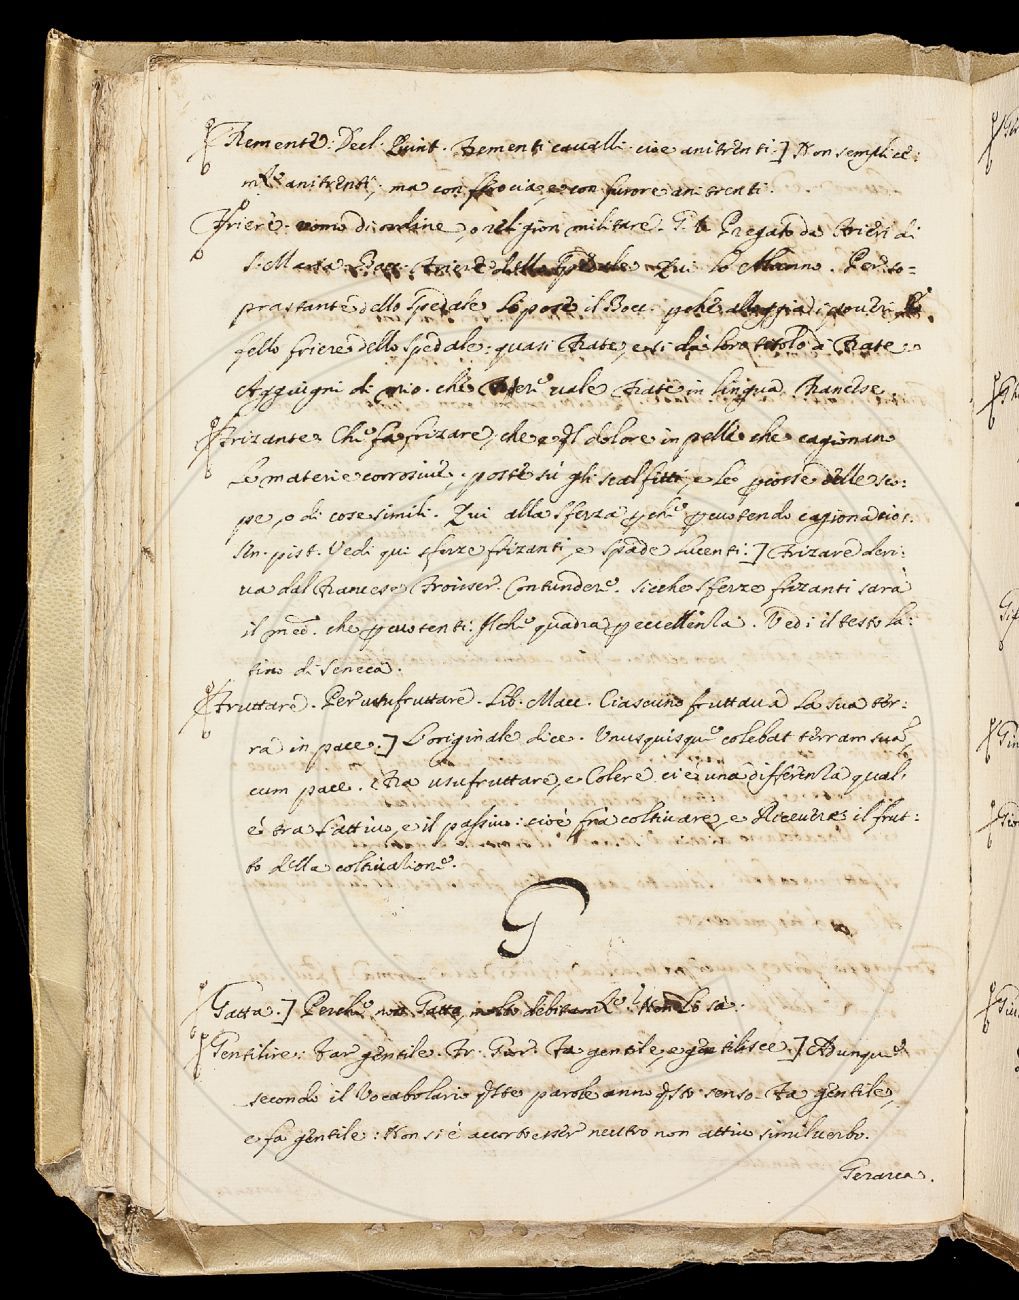 Frementi: Decl. Quint. Frementi cavalli cioè anitrenti.] Non semplice:
mte anitrenti, ma con ferocia, e con furore anitrenti.
Friere. nome di ordine, o religion militare. G. V. Pregato da Frieri di
S. Maria Bocc. Friere dello Spedale Qui lo Alunno. Per so-
prastante dello Spedale lo pone il Bocc. pche alloggia di poveri
qllo friere dello spedale: quasi Frate, e si dà loro titolo di Frate
Aggiugni di mio. che Frier vale Frate in lingua Francese
Frizante. Che fa frizare, che è ql dolore in pelle che cagionano
le materie corrosive, poste sù gli scalfitti, e le percosse delle sco:
pe, o di cose simili. Qui alla sferza pche percotendo cagiona ciò.
Sen. pist. Vedi qui sferze frizanti, e spade lucenti.] Frizare deri:
va dal Francese Froisser. Contundere. sicche sferze frizanti sarà
il med. che percotenti: Ilche quadra p eccellenza. Vedi il testo la:
tino di Seneca.
Fruttare. Per usufruttare. Lib. Macc. Ciascuno fruttava la sua ter:
ra in pace.] L'originale dice. Unusquisque colebat terram suam
cum pace. Fra usufruttare, e Colere ci è una differenza qual'
è tra l'attivo, e il passivo: cioè frà coltivare, e Ricevere il frut:
to della coltivazione.
G
Gatta.] Perche non Gatta, molto debitamte? Non lo sà.
Gentilire: Far gentile. Fr. Fa gentile, e gentilisce.] Dunque
secondo il Vocabolario qste parole anno qsto senso. Fa gentile,
e fa gentile: Non si è accorto esser neutro non attivo simil verbo.
Gerarca.